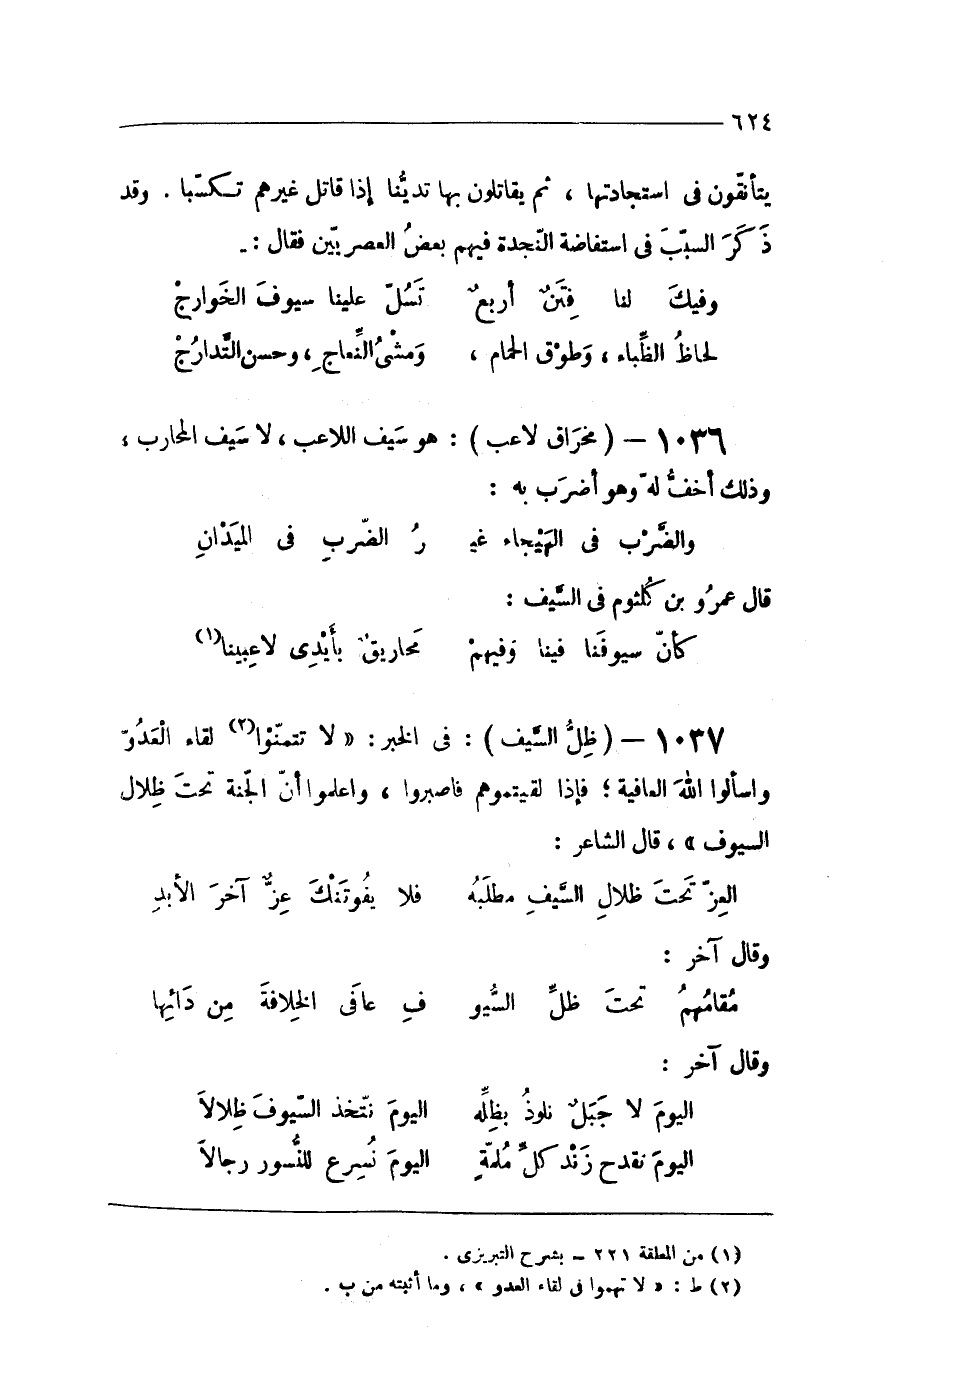 ٦٢٤
يتأنّقون فى استجادتها ، ثم يقاتلون بها تديُّنا إذا قاتل غيرهم تكسّبا . وقد
ذَكَرَ السببَ فى استفاضة النّجدة فيهم بعضُ العصريّين فقال :ـ
وفيكَ لنا فِتَنٌ أربعٌ تَسُلّ علينا سيوفَ الخَوارجْ
لحاظُ الظِّباء ، وَطوْق الحمام ، وَمشْىُ النِّعاجِ ، وحسن التَّدارُجْ
١٠٣٦ — ( مخرَاق لاعب ) : هو سَيف اللاعب ، لا سَيف المحارب ؛
وذلك أخفُّ له وهو أضرَب به :
والضَّرْب فى الهَيْجاء غيـ ـرُ الضّربِ فى الميَدْانِ
قال عمرُو بن كُلثوم فى السَّيف :
كأنّ سيوفَنا فينا وَفيهمْ مَخاريقٌ بأَيْدِى لاعِبينا(١)
١٠٣٧ — ( ظِلُّ السَّيف ) : فى الخبر : « لا تتمنّوْا(٢) لقاء الْعَدُوّ
واسألوا اللهَ العافية ؛ فإذا لقيتموهم فاصبروا ، واعلموا أنّ الجنة تحتَ ظِلال
السيوف » ، قال الشاعر :
العِزّ تَحتَ ظلالِ السَّيفِ مطلَبُه فلا يفُوتَنْكَ عِزٌّ آخرَ الأبدِ
وقال آخر :
مُقامُهمُ تحتَ ظلِّ السُّيو فِ عافَى الخِلافةَ مِن دَائِها
وقال آخر :
اليومَ لا جَبَلٌ نلوذُ بظِلِّه اليومَ نتّخذ السّيوفَ ظِلالاَ
اليومَ نقدح زَنْد كلِّ مُلمّةٍ اليومَ نُسِرع للنُّسور رجالاَ
(١) من المعلقة ٢٢١ – بشرح التبريزى .
(٢) ط : « لا تهموا فى لقاء العدو » ، وما أثبته من ب .